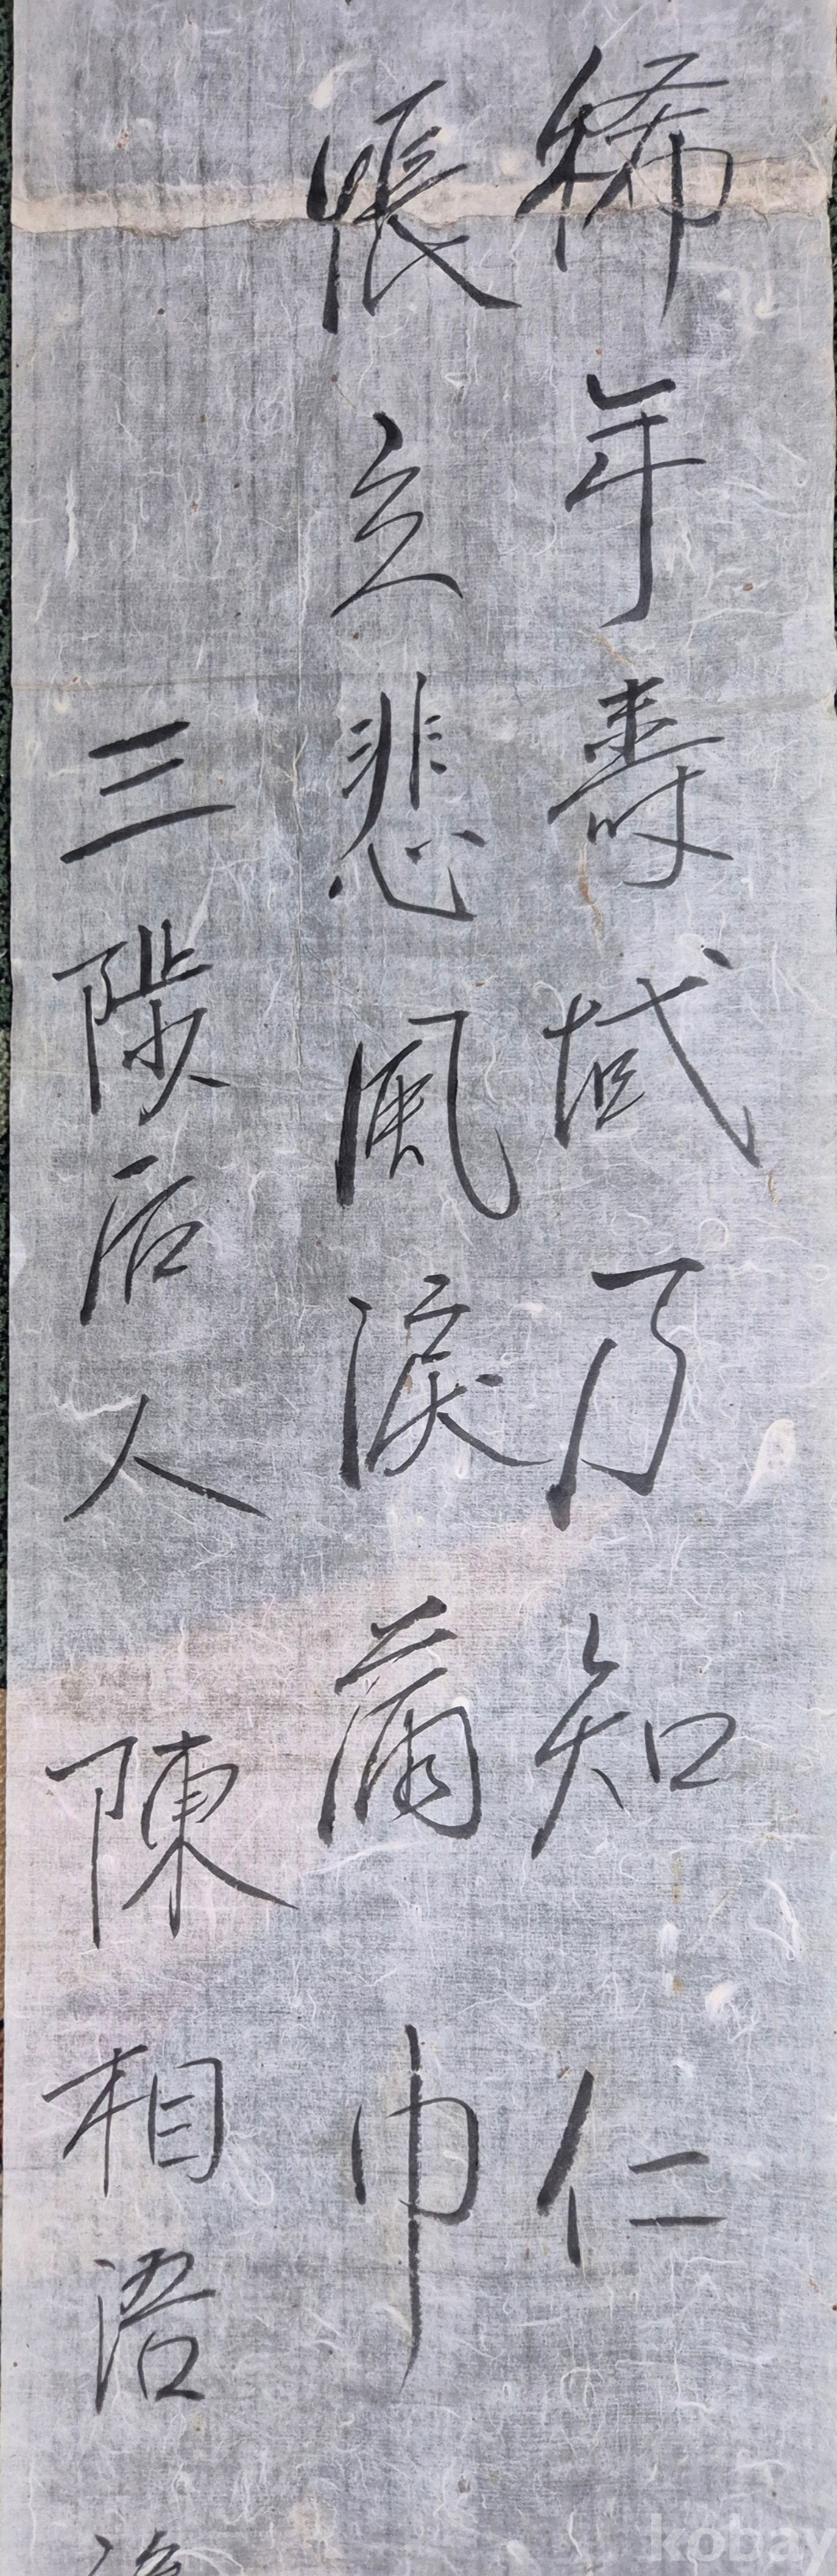 稀年壽域乃知仁
悵立悲風淚滿巾
三陟后人 陳相浯
kobay